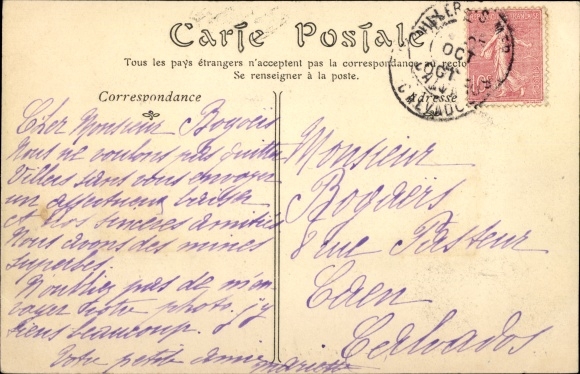 Carte Postale
Tous les pays étrangers n'acceptent pas la correspondance au recto
Se renseigner à la poste.
Correspondance
Adresse
VILLERS S MER
OCT
CALVADOS
Cher Monsieur Bogaëis
Nous ne voulons pas quitter
Villers sans vous envoyer
un affectueux baiser
et nos sincères amitiés
Nous avons des mines
superbes.
N'oubliez pas de m'en
voyer votre photo. j'y
tiens beaucoup.
Votre petite amie
Mariette
Monsieur
Bogaërs
8 rue Pasteur
Caen
Calvados